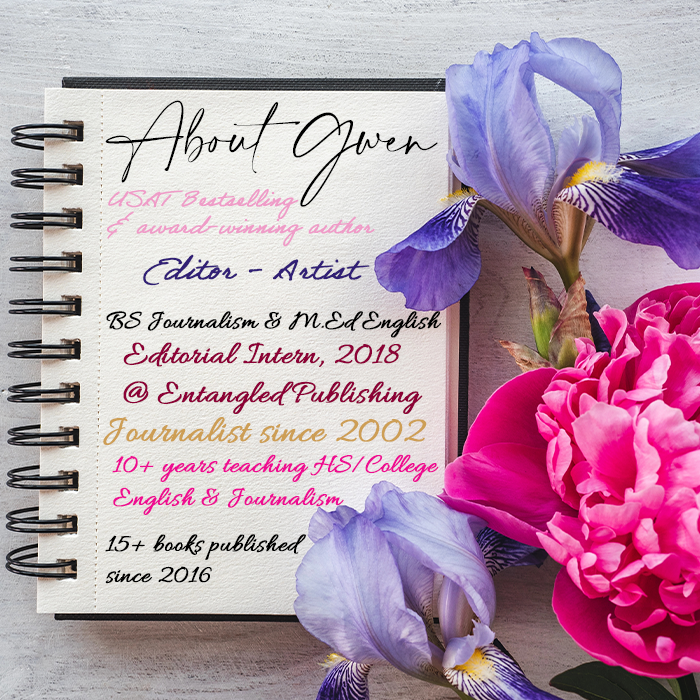 About Gwen
USAT Bestselling
& award-winning author
Editor - Artist
BS Journalism & M.Ed English
Editorial Intern, 2018
@ Entangled Publishing
Journalist since 2002
10+ years teaching HS/College
English & Journalism
15+ books published
since 2016